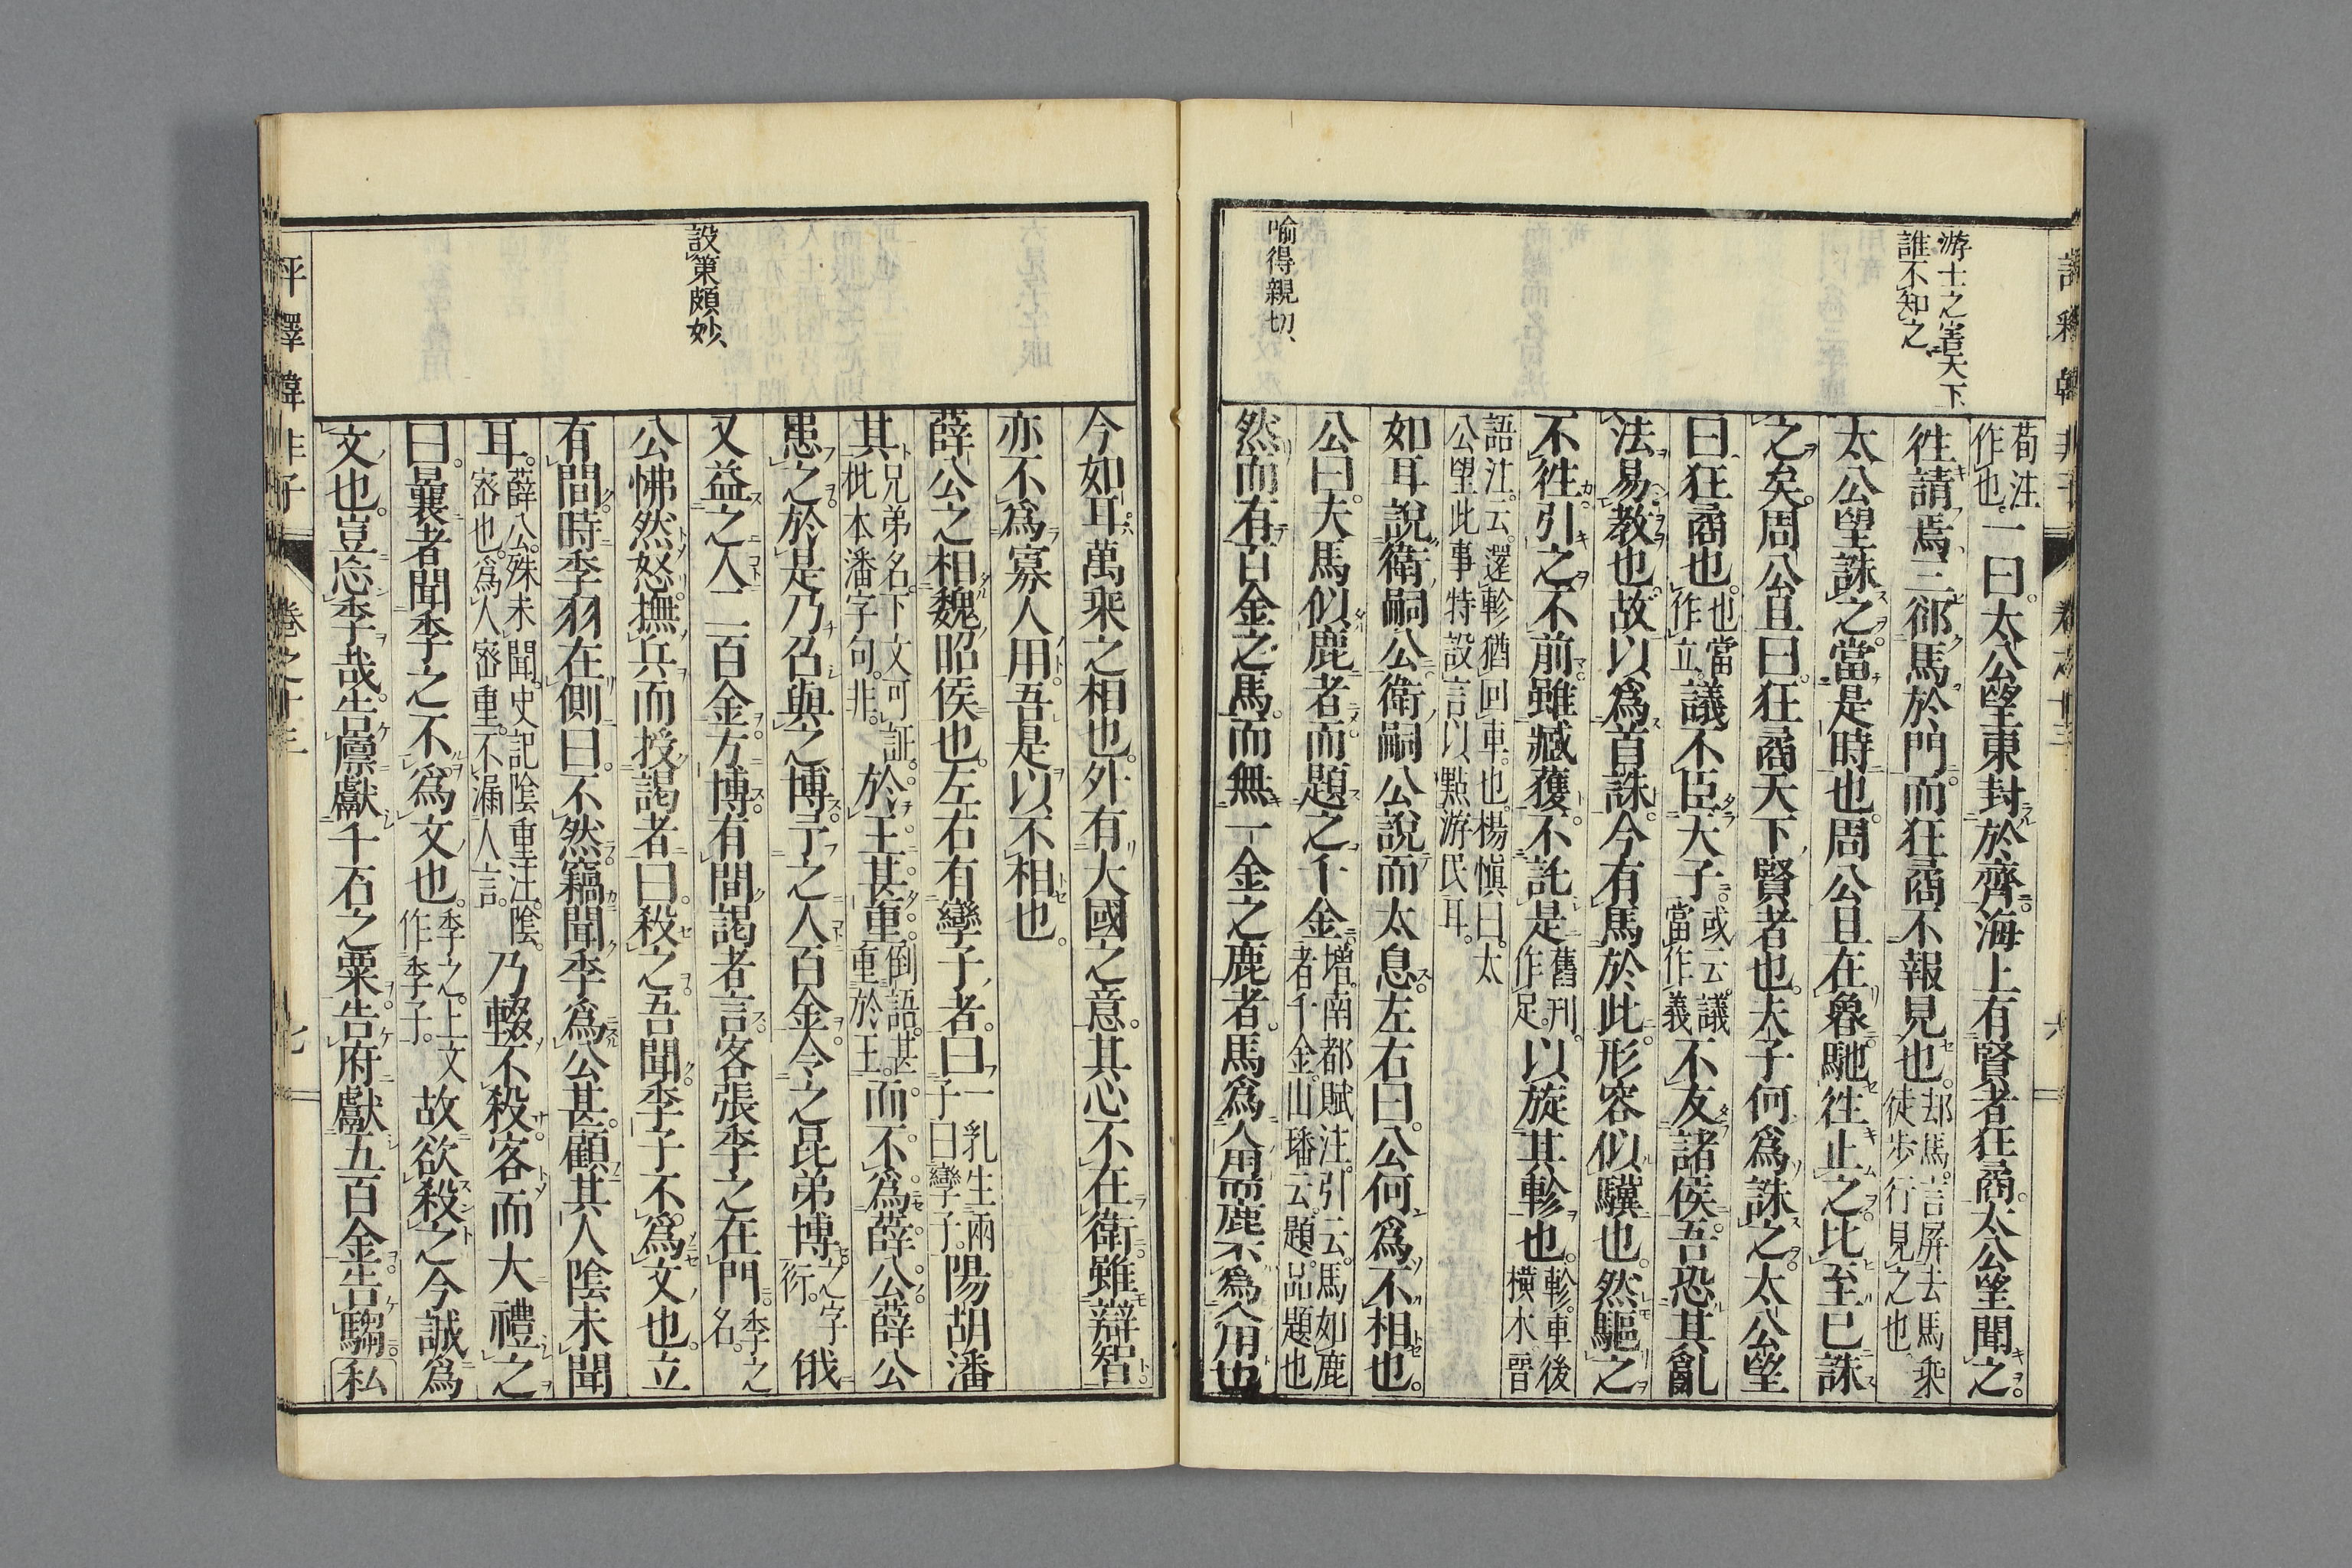 評釋韓非子
卷之十三
六
游士之害天下
誰不知之
喻得親切、
荀注作也。一曰。太公望東封於齊。海上有賢者狂矞。太公望聞之。
徃請焉。三郤馬於門。而狂矞不報見也。却馬。言屏去馬乘徒歩行見之也
太公望誅之。當是時也。周公旦在魯。馳徃止之。比至已誅
之矣。周公旦曰。狂矞天下賢者也。夫子何爲誅之。太公望
曰。狂矞也。也當作立。議不臣天子。或云議當作義不友諸侯。吾恐其亂
法易教也。故以爲首誅。今有馬於此。形容似驥也。然驅之
不徃。引之不前。雖臧獲。不託是舊刊。作足。以旋其軫也。軫。車後橫木。晉
語注。云。還軫猶回車也。楊愼曰。太公望此事特設言以點游民耳。
如耳說衛嗣公。衛嗣公說而太息。左右曰。公何爲不相也。
公曰。夫馬似鹿者。而題之千金。增。南都賦注。引云。馬如鹿者千金。山璠云。題。品題也
然而有百金之馬。而無一金之鹿者。馬爲人用而鹿不爲人用也
設策頗妙、
今如耳萬乘之相也。外有大國之意。其心不在衛。雖辯智
亦不爲寡人用。吾是以不相也。
薛公之相魏昭侯也。左右有孿子者。曰一乳生兩子曰孿子。陽胡潘
其兄弟名。下文可証。批本潘字句。非。於王甚重。倒語。甚重於王。而不爲薛公。薛公
患之。於是乃召與之博。予之人百金。令之昆弟博。之字衍。俄
又益之人二百金。方博。有間。謁者言客張季之在門。季之名。
公怫然怒。撫兵而授謁者曰。殺之。吾聞季子不爲文也。立
有間。時季羽在側。曰。不然。竊聞季爲公甚。顧其人陰未聞
耳。薛公殊未聞。史記陰重注。陰。密也。爲人密重。不漏人言。乃輟不殺客而大禮之
曰。曩者聞季之不爲文也。季之。上文作季子。故欲殺之。今誠爲
文也。豈忘季哉。告廩獻千石之粟。告府獻五百金。告騶私
評釋韓非子
卷之十三
七